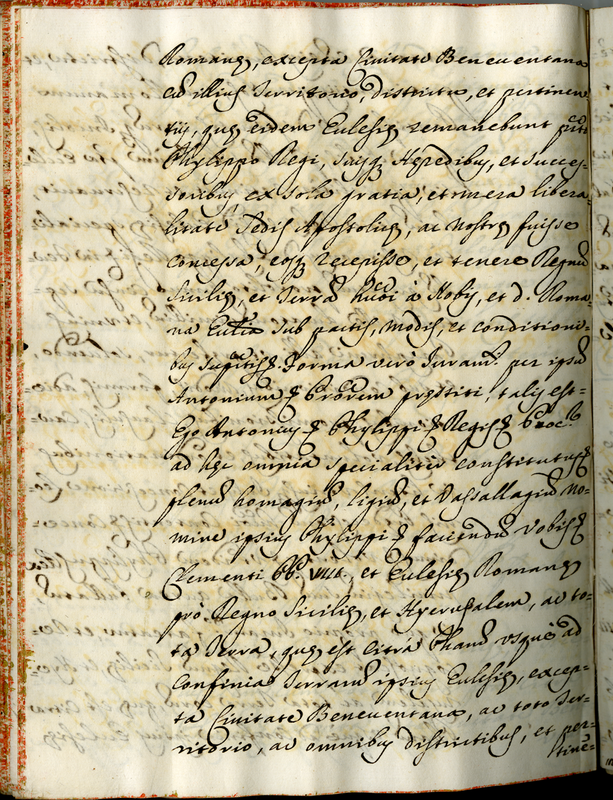 Romanę, excepta Civitate Beneventana
cũ illius Territorio, districtu, et pertinen-
tijs, quę eidem Eclesię remanebunt
Phylippo Regi, suisq; Hęredibus, et succes-
soribus ex sola gratia, et mera libera-
litate Sedis Apostolicę, ac Nostrę fuisse
concessa, eosq; recepisse, et tenere Regnũ
Sicilię, et Terrã à Nobis, et d. Roma-
na Ecclia sub pactis, modis, et conditioni-
bus Forma verò Iuram.ti per ipsũ
Antonium prestiti, talis est-
Ego Antonius Phylippi Regis Proc.
ad hęc omnia specialiter constitutus
plenũ homagiũ, ligiũ, et Vassallagiũ No-
mine ipsius Phylippi faciendũ vobis
Clementi PP. VIII., et Eclesię Romanę
prò Regno Sicilię, et Hyerusalem, ac to-
ta Terra, quę est citrà Pharũ usquè ad
confinia Terrarũ ipsius Eclesię, excep-
ta Civitate Beneventana, ac toto Ter-
ritorio, ac omnibus districtibus, et per-
tinẽ-